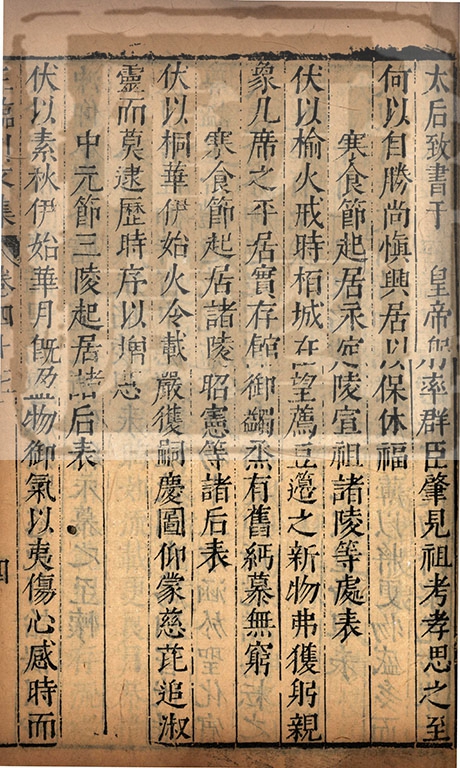 太后致書于 皇帝 率群臣肇見祖考孝思之至
何以自勝尚慎興居以保休福
寒食節起居永定陵宣祖諸陵等處表
伏以榆火戒時栢城在望薦豆籩之新物弗獲躬親
象几席之平居實存館御蠲烝有舊緬慕無窮
寒食節起居諸陵昭憲等諸后表
伏以桐華伊始火令載嚴獲嗣慶圖仰蒙慈芘追淑
靈而莫逮歷時序以增
中元節三陵起居諸后表
伏以素秋伊始華月既 物御氣以夷傷心感時而
王臨川文集 卷四十七
四